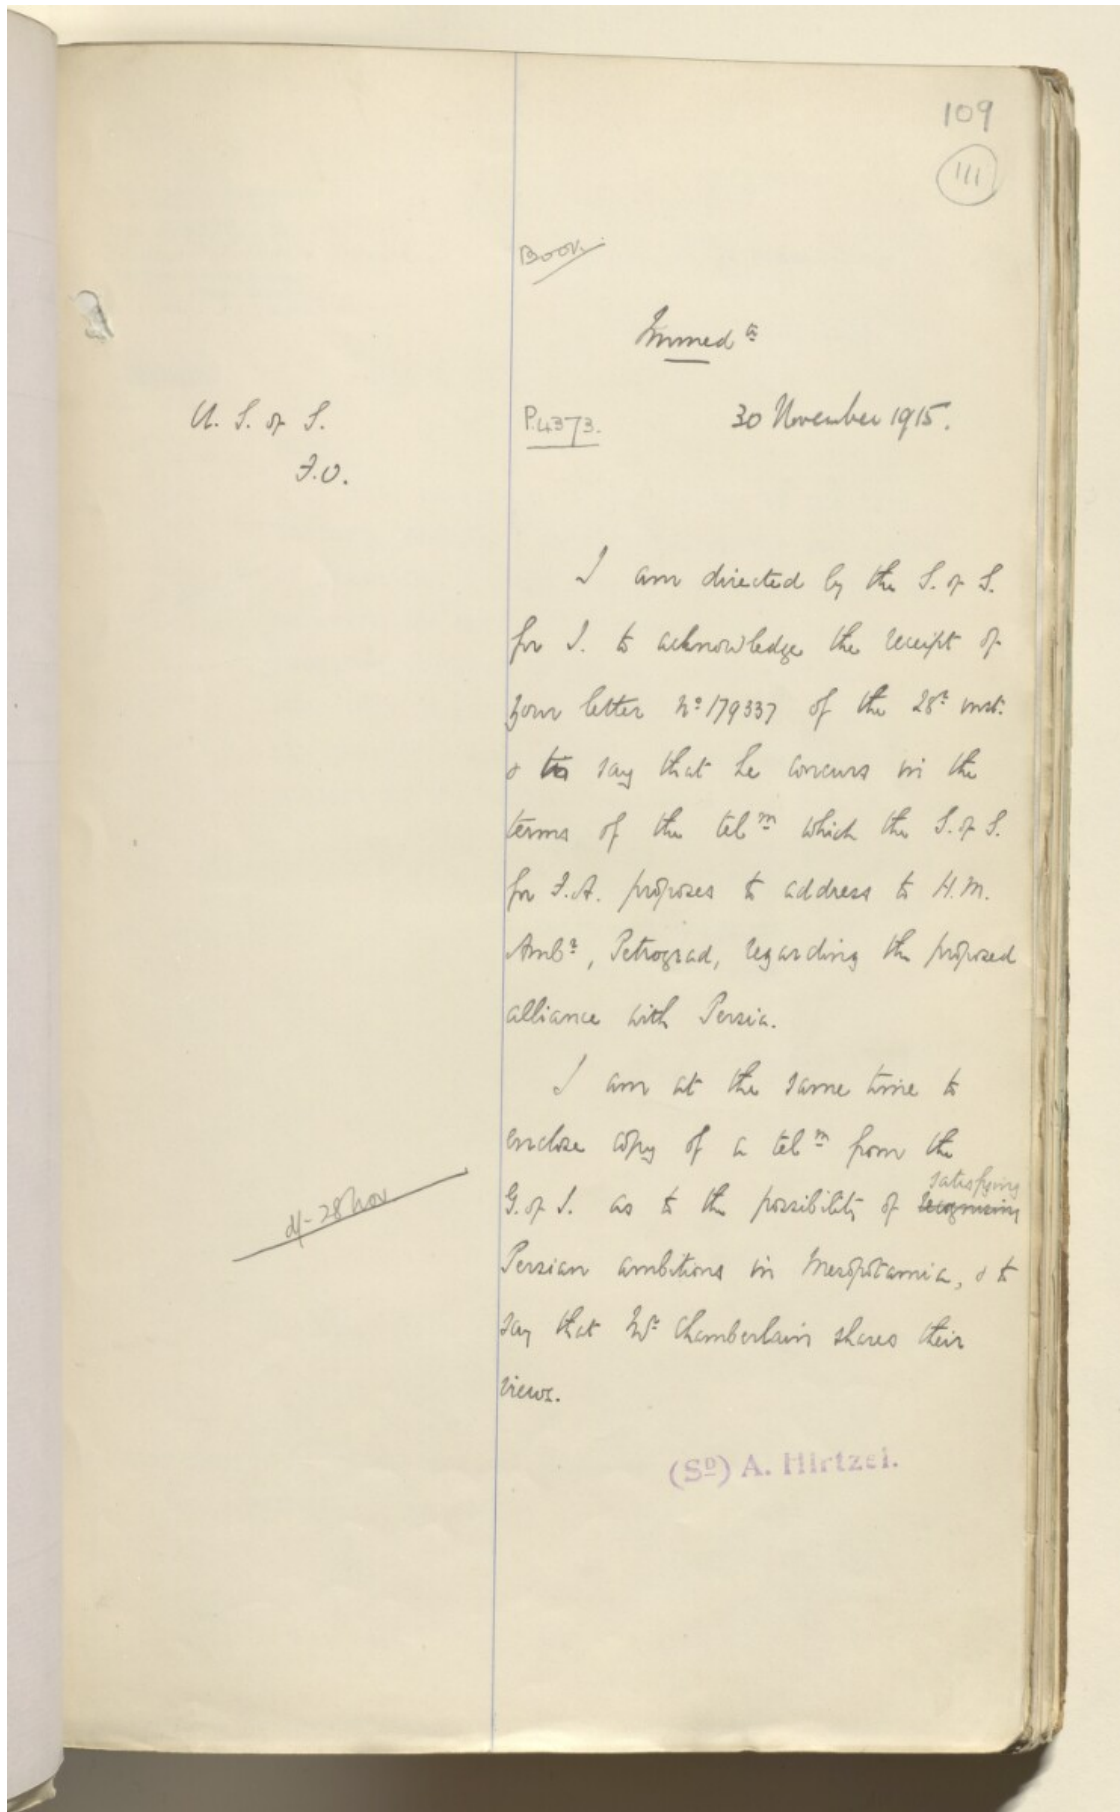 109
111
Book.
Immed te
U. S. of S.
F.O.
P.4373.
30 November 1915.
I am directed by the S. of S.
for I. to acknowledge the receipt of
your letter No 179337 of the 28th inst.
& to say that he concurs in the
terms of the telm which the S. of S.
for F.A. proposes to address to H.M.
Ambr, Petrograd, regarding the proposed
alliance with Persia.
I am at the same time to
enclose copy of a telm from the
d/- 28 Nov
satisfying
G. of I. as to the possibility of recognising
Persian ambitions in Mesopotamia, & to
say that Mr Chamberlain shares their
views.
(SD) A. Hirtzel.